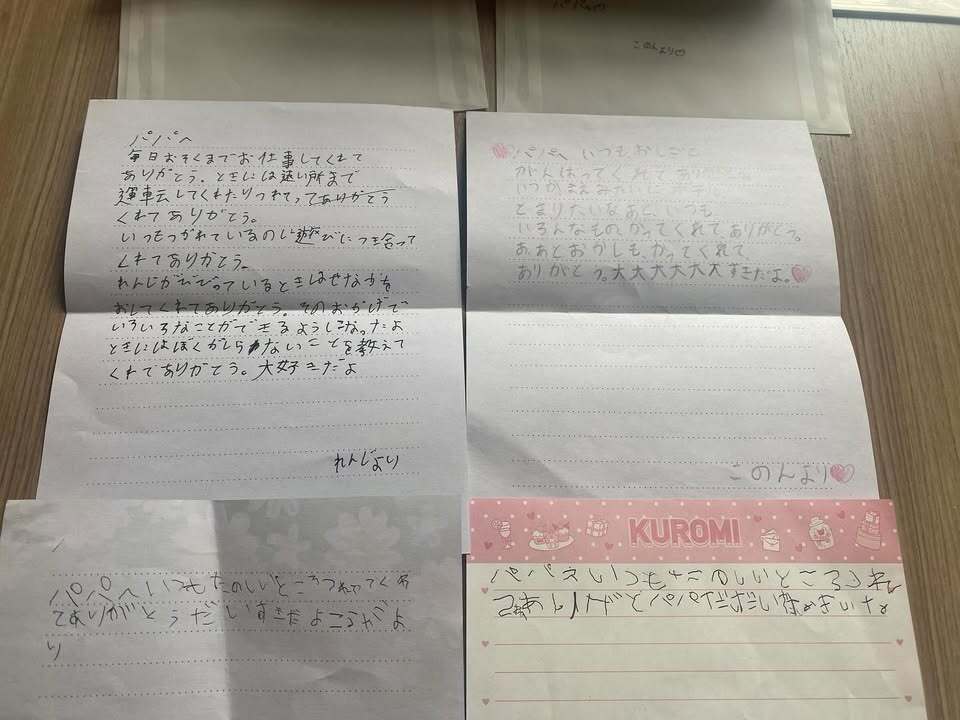 パパへ
このんより♡
パパへ
毎日おそくまでお仕事してくれて
ありがとう。ときには遠い所まで
運転してくれたりつれてってありがとう
くれてありがとう。
いつもつかれているのに遊びにつき合って
くれてありがとう。
れんじがびびっているときはせなかを
おしてくれてありがとう。そのおかげで
いろいろなことができるようになったよ
ときにはぼくがしらないことを教えて
くれてありがとう。大好きだよ
れんじより
パパへ いつもおしごと
がんばってくれてありがとう。
いつか
とまりたいなあと、いつも
いろんなものかってくれてありがとう。
あぁとおかしも、かってくれて、
ありがとう。大大大大大大すきだよ。
このんより
パパへいつもたのしいところつれててくれ
てありがとうだいすきだよ
り
KUROMI
パパえいつもたのしいところつれ
パパだ